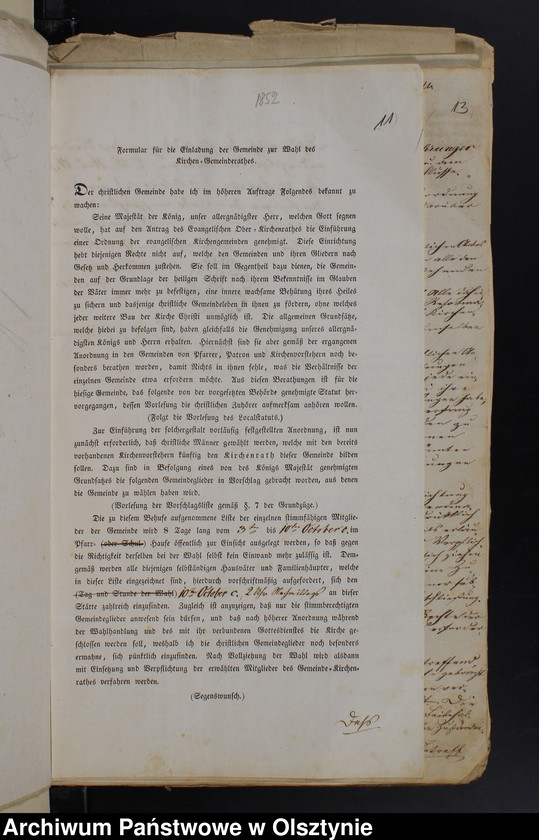 1852
11
13
Formular für die Einladung der Gemeinde zur Wahl des
Kirchen-Gemeinderathes.
Der christlichen Gemeinde habe ich im höheren Auftrage Folgendes bekannt zu
machen:
Seine Majestät der König, unser allergnädigster Herr, welchen Gott segnen
wolle, hat auf den Antrag des Evangelischen Ober-Kirchenrathes die Einführung
einer Ordnung der evangelischen Kirchengemeinden genehmigt. Diese Einrichtung
hebt diejenigen Rechte nicht auf, welche den Gemeinden und ihren Gliedern nach
Gesetz und Herkommen zustehen. Sie soll im Gegentheil dazu dienen, die Gemein-
den auf der Grundlage der heiligen Schrift nach ihrem Bekenntnisse im Glauben
der Väter immer mehr zu befestigen, eine innere wachsame Behütung ihres Heiles
zu sichern und dasjenige christliche Gemeindeleben in ihnen zu fördern, ohne welches
jeder weitere Bau der Kirche Christi unmöglich ist. Die allgemeinen Grundsätze,
welche hiebei zu befolgen sind, haben gleichfalls die Genehmigung unseres allergnä-
digsten Königs und Herrn erhalten. Hiernächst sind sie aber gemäß der ergangenen
Anordnung in den Gemeinden von Pfarrer, Patron und Kirchenvorstehern noch be-
sonders berathen worden, damit Nichts in ihnen fehle, was die Verhältnisse der
einzelnen Gemeinde etwa erfordern möchte. Aus diesen Berathungen ist für die
hiesige Gemeinde, das folgende von der vorgesetzten Behörde genehmigte Statut her-
vorgegangen, dessen Vorlesung die christlichen Zuhörer aufmerksam anhören wollen.
(Folgt die Vorlesung des Localstatuts.)
Zur Einführung der solchergestalt vorläufig festgestellten Anordnung, ist nun
zunächst erforderlich, daß christliche Männer gewählt werden, welche mit den bereits
vorhandenen Kirchenvorstehern künftig den Kirchenrath dieser Gemeinde bilden
sollen. Dazu sind in Befolgung eines von des Königs Majestät genehmigten
Grundsatzes die folgenden Gemeindeglieder in Vorschlag gebracht worden, aus denen
die Gemeinde zu wählen haben wird.
(Vorlesung der Vorschlagsliste gemäß §. 7 der Grundzüge.)
Die zu diesem Behufe aufgenommene Liste der einzelnen stimmfähigen Mitglie-
der der Gemeinde wird 8 Tage lang vom 3ten bis 10ten October c. im
Pfarr- (oder Schul-) Hause öffentlich zur Einsicht ausgelegt werden, so daß gegen
die Richtigkeit derselben bei der Wahl selbst kein Einwand mehr zulässig ist. Dem-
gemäß werden alle diejenigen selbstständigen Hausväter und Familienhäupter, welche
in dieser Liste eingezeichnet sind, hierdurch vorschriftmäßig aufgefordert, sich den
(Tag und Stunde der Wahl) 10ten October c., 2 Uhr Nachmittags an dieser
Stätte zahlreich einzufinden. Zugleich ist anzuzeigen, daß nur die stimmberechtigten
Gemeindeglieder anwesend sein dürfen, und daß nach höherer Anordnung während
der Wahlhandlung und des mit ihr verbundenen Gottesdienstes die Kirche ge-
schlossen werden soll, weshalb ich die christlichen Gemeindeglieder noch besonders
ermahne, sich pünktlich einzufinden. Nach Vollziehung der Wahl wird alsdann
mit Einsetzung und Verpflichtung der erwählten Mitglieder des Gemeinde-Kirchen-
rathes verfahren werden.
(Segenswunsch.)
Archiwum Państwowe w Olsztynie